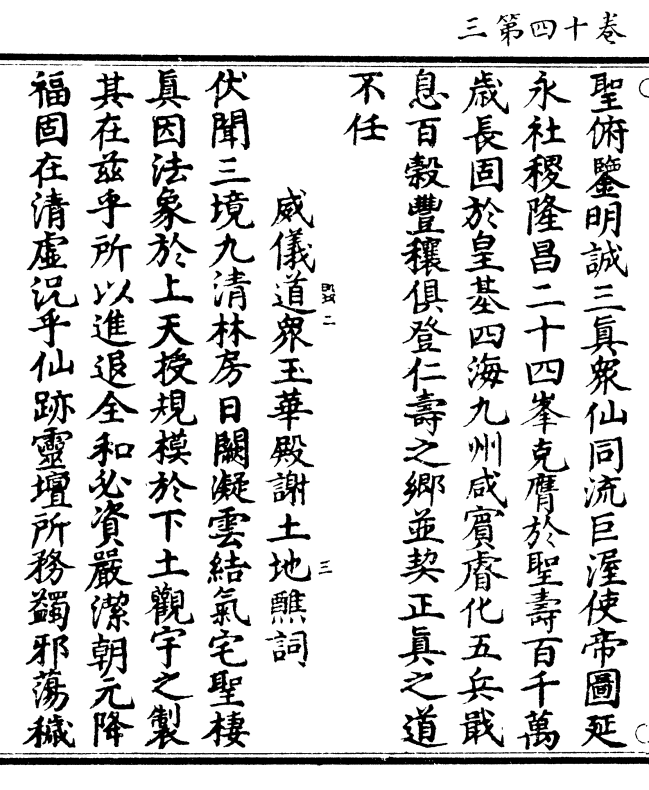 卷十四第三
聖俯鑒明誠三眞衆仙同流巨渥使帝圖延
永社稷隆昌二十四峯克膺於聖壽百千萬
歲長固於皇基四海九州咸賓睿化五兵戢
息百穀豐穰俱登仁壽之鄉並契正眞之道
不任
威儀道衆玉華殿謝土地醮詞
二
三
伏聞三境九清林房日闕凝雲結氣宅聖棲
眞因法象於上天授規模於下土觀宇之製
其在茲乎所以進退全和必資嚴潔朝元降
福固在清虛況乎仙跡靈壇所務蠲邪蕩穢